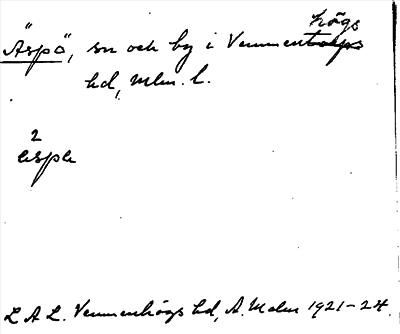 Äspö, sn och by i Vemmenhögs
hd, Mlm. l.
2
espe
L A L. Vemmenhögs hd, A. Malm 1921-24.